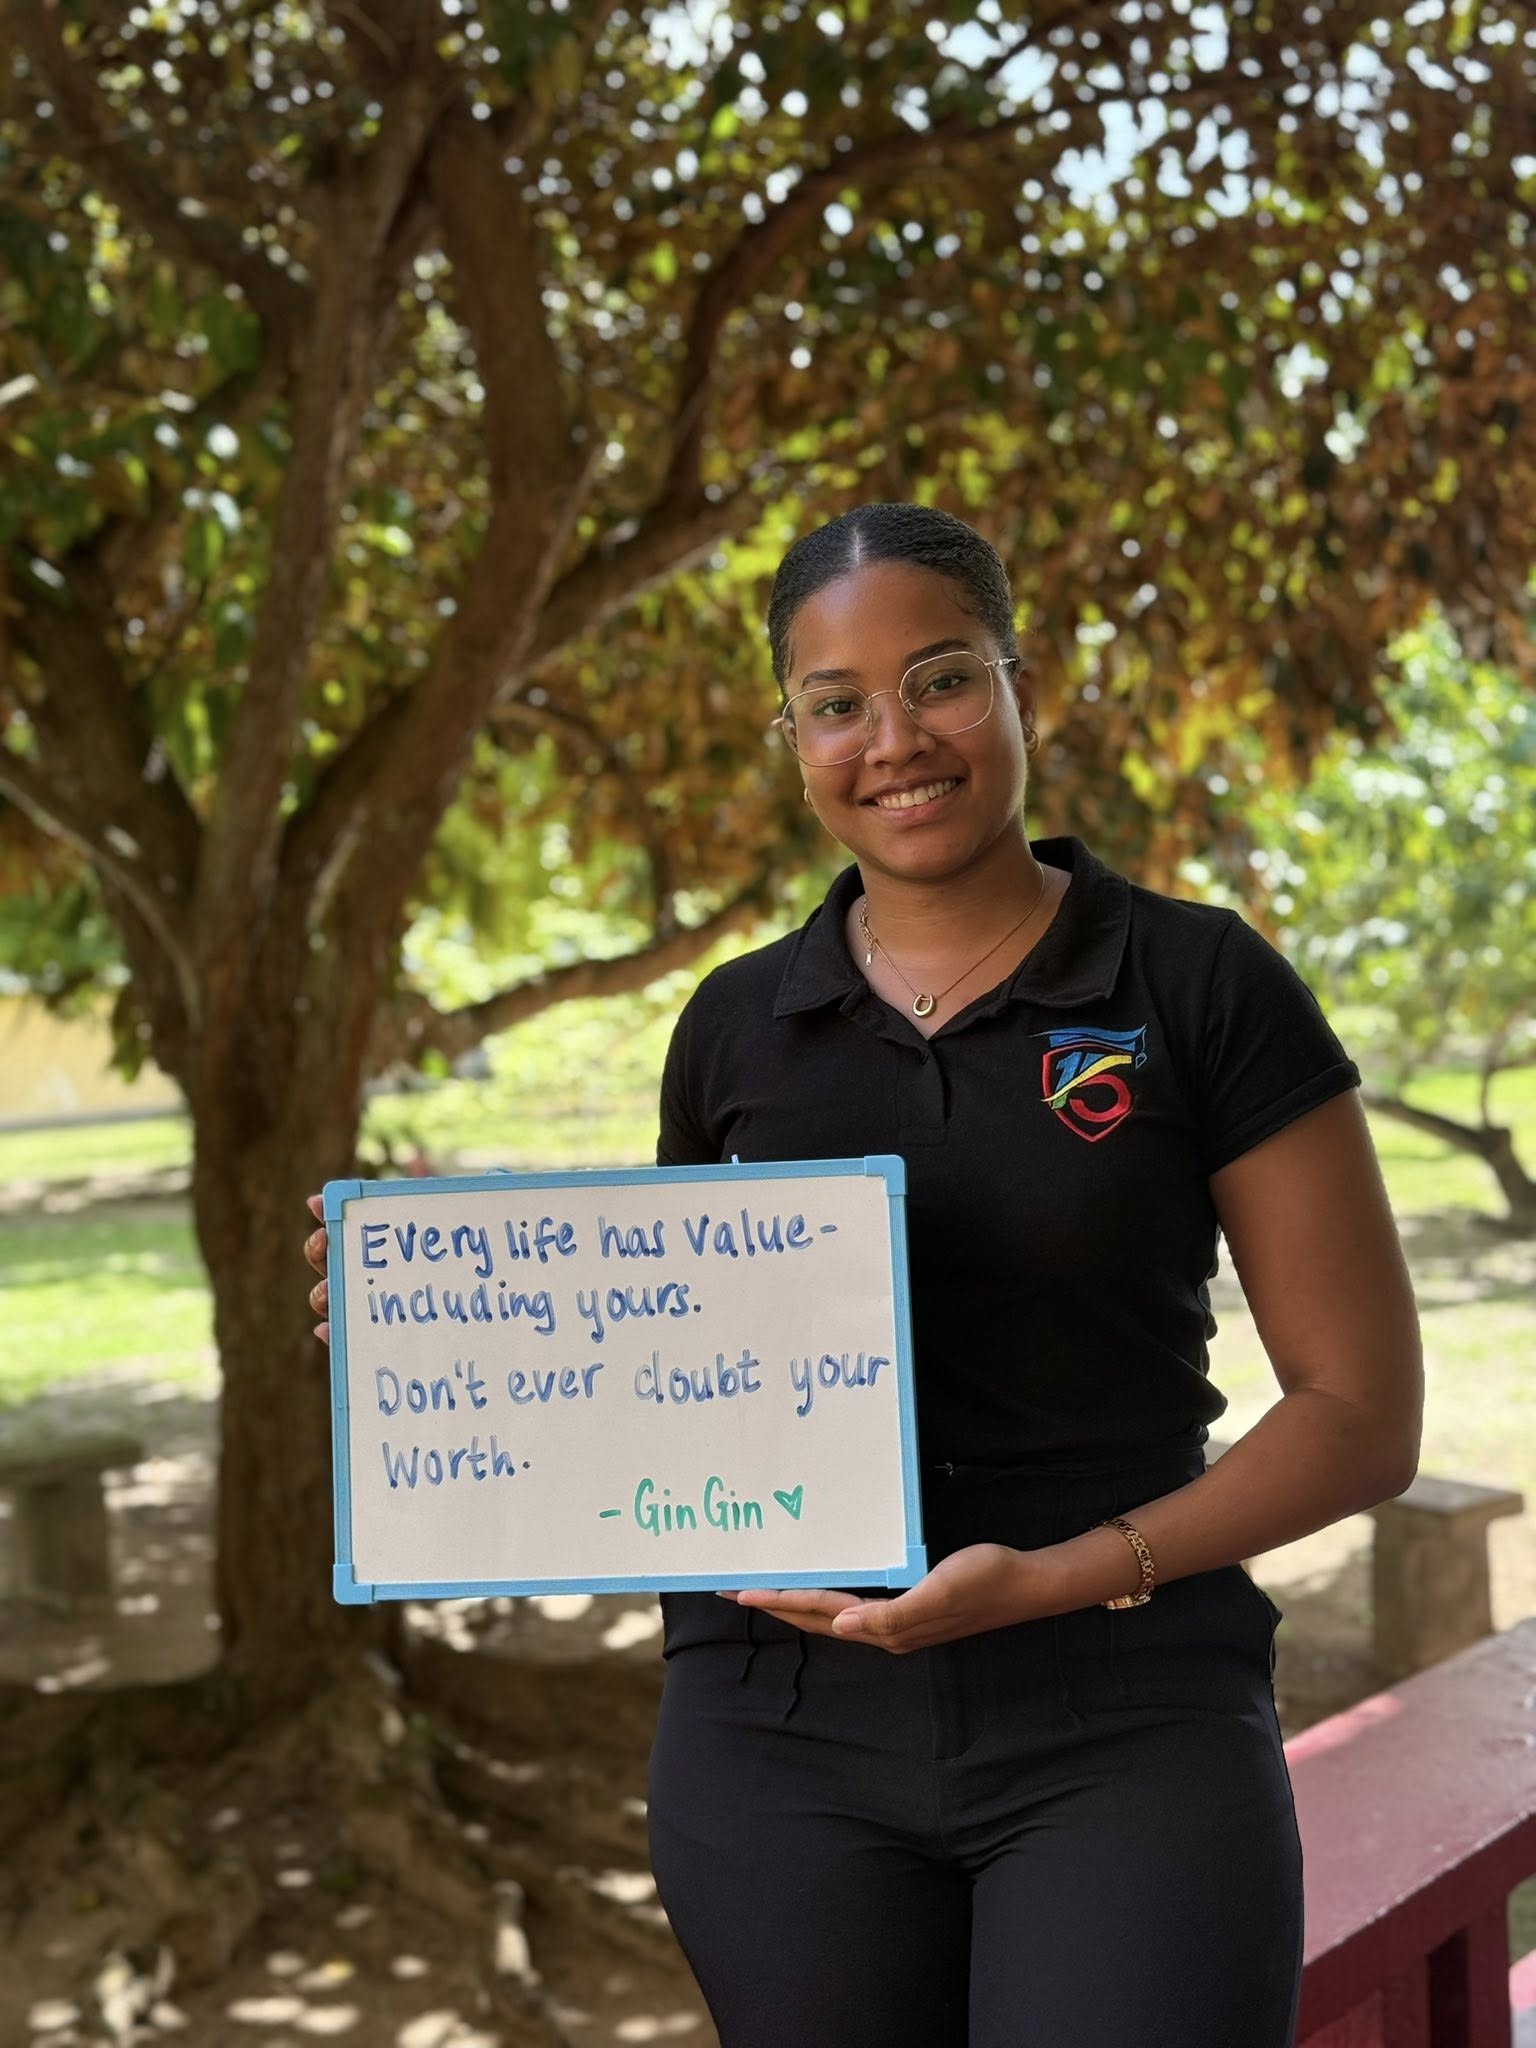 Every life has value-
including yours.
Don't ever doubt your
Worth.
- GinGin ♡
15